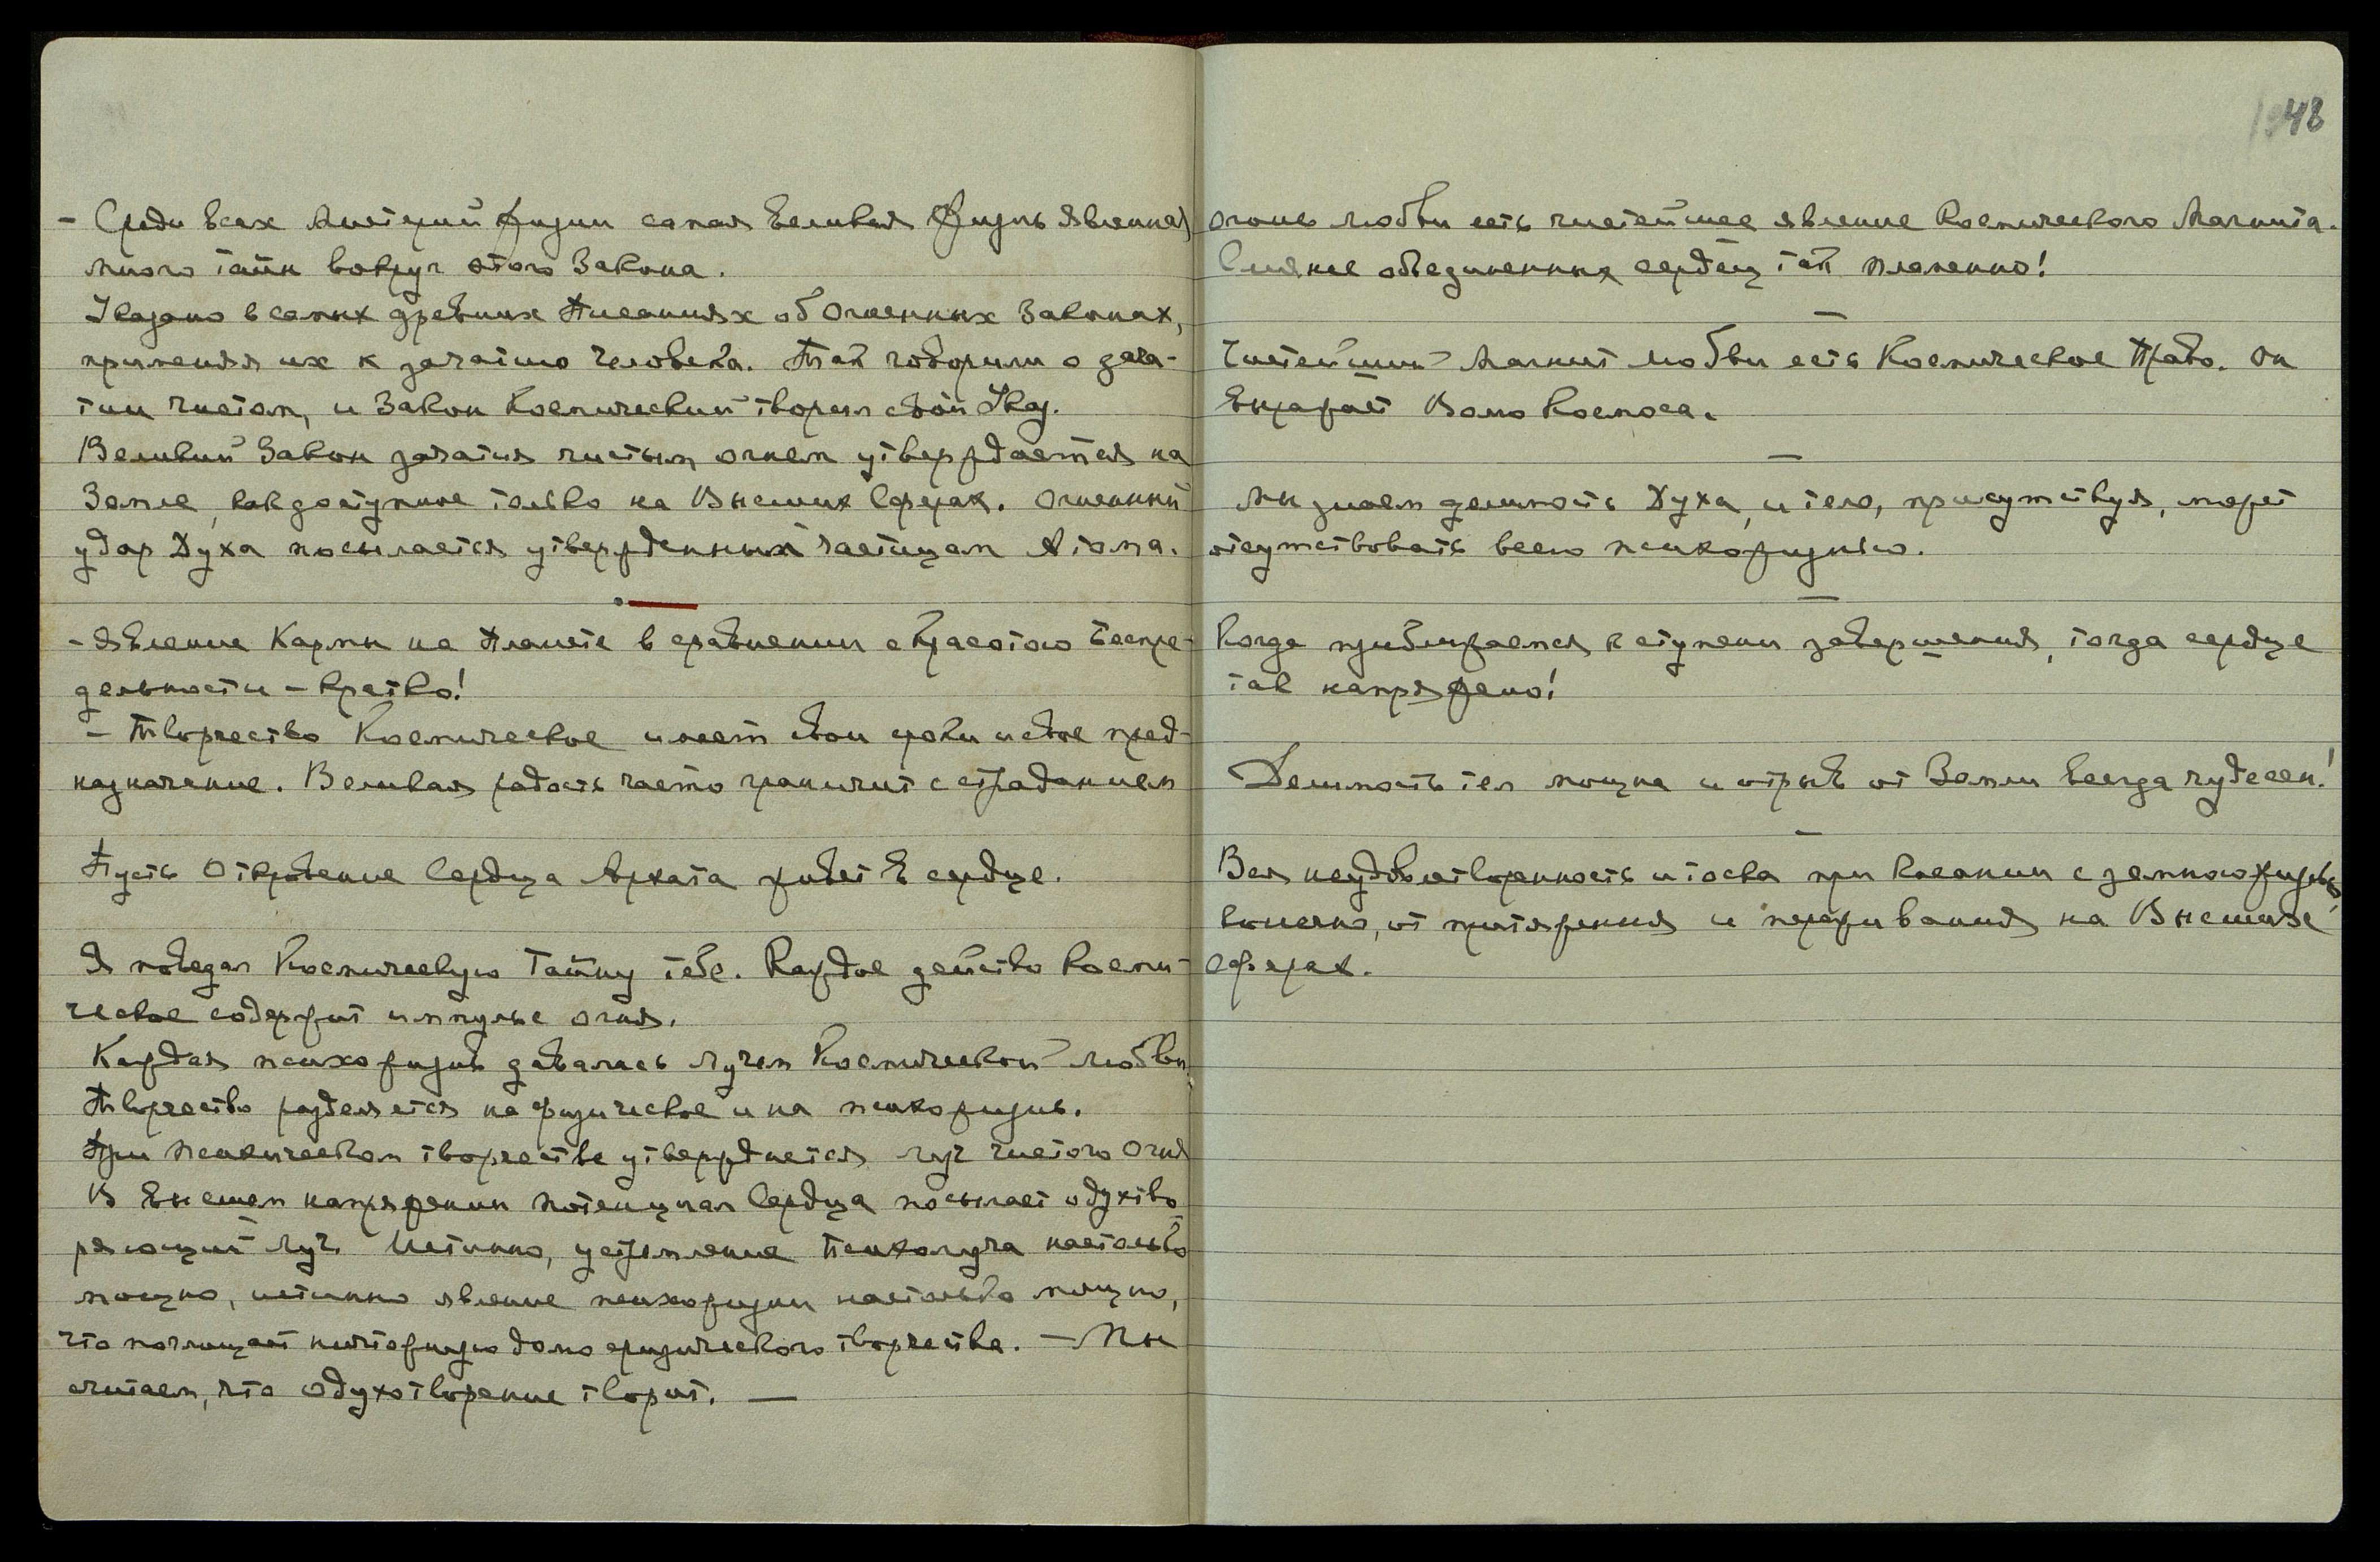 - Среди всех Мистерий жизни самая великая Жизнь явленная
много тайн вокруг этого Закона.
Указано в самых древних Писаниях об Огненных Законах,
применяя их к зачатию человека. Так говорили о зача-
тии чистом, и Закон Космический творил свой Указ.
Великий Закон зачатия чистым огнем утверждается на
Земле, как доступное только на Высших Сферах. Огненный
удар Духа посылается утвержденным частицам Атома.
- Явление Кармы на Планете в сравнении с красотою Беспре-
дельности - кратко!
- Творчество Космическое имеет свои сроки и свое пред-
назначение. Великая радость часто граничит с страданием
Пусть Откровение Сердца Архата живет в сердце.
Я поведал Космическую Тайну тебе. Каждое действо косми-
ческое содержит импульс огня.
Каждая психожизнь давалась лучем Космической любви.
Творчество разделяется на физическое и на психожизнь.
При психическом творчестве утверждается луч чистого Огня
В высшем напряжении потенциал Сердца посылает одухотво-
ряющий луч. Истинно, устремление Психолуча настолько
мощно, истинно явление психожизни настолько мощно,
что поглощает ничтожную долю физического творчества. - Мы
считаем, что одухотворение творит. —
48
Огонь любви есть чистейшее явление Космического Магнита.
Слияние объединенных сердец так пламенно!
Чистейший Магнит любви есть Космическое Право. Он
выражает Волю Космоса.
Мы знаем делимость Духа, и тело, присутствуя, может
отсутствовать всею психожизнью.
Когда приближаемся к ступени завершения, тогда сердце
так напряжено!
Делимость тел мощна и отрыв от Земли всегда чудесен!
Вся неудовлетворенность и тоска при касании с земною жизнью,
конечно, от притяжения и переживания на Высших
сферах.